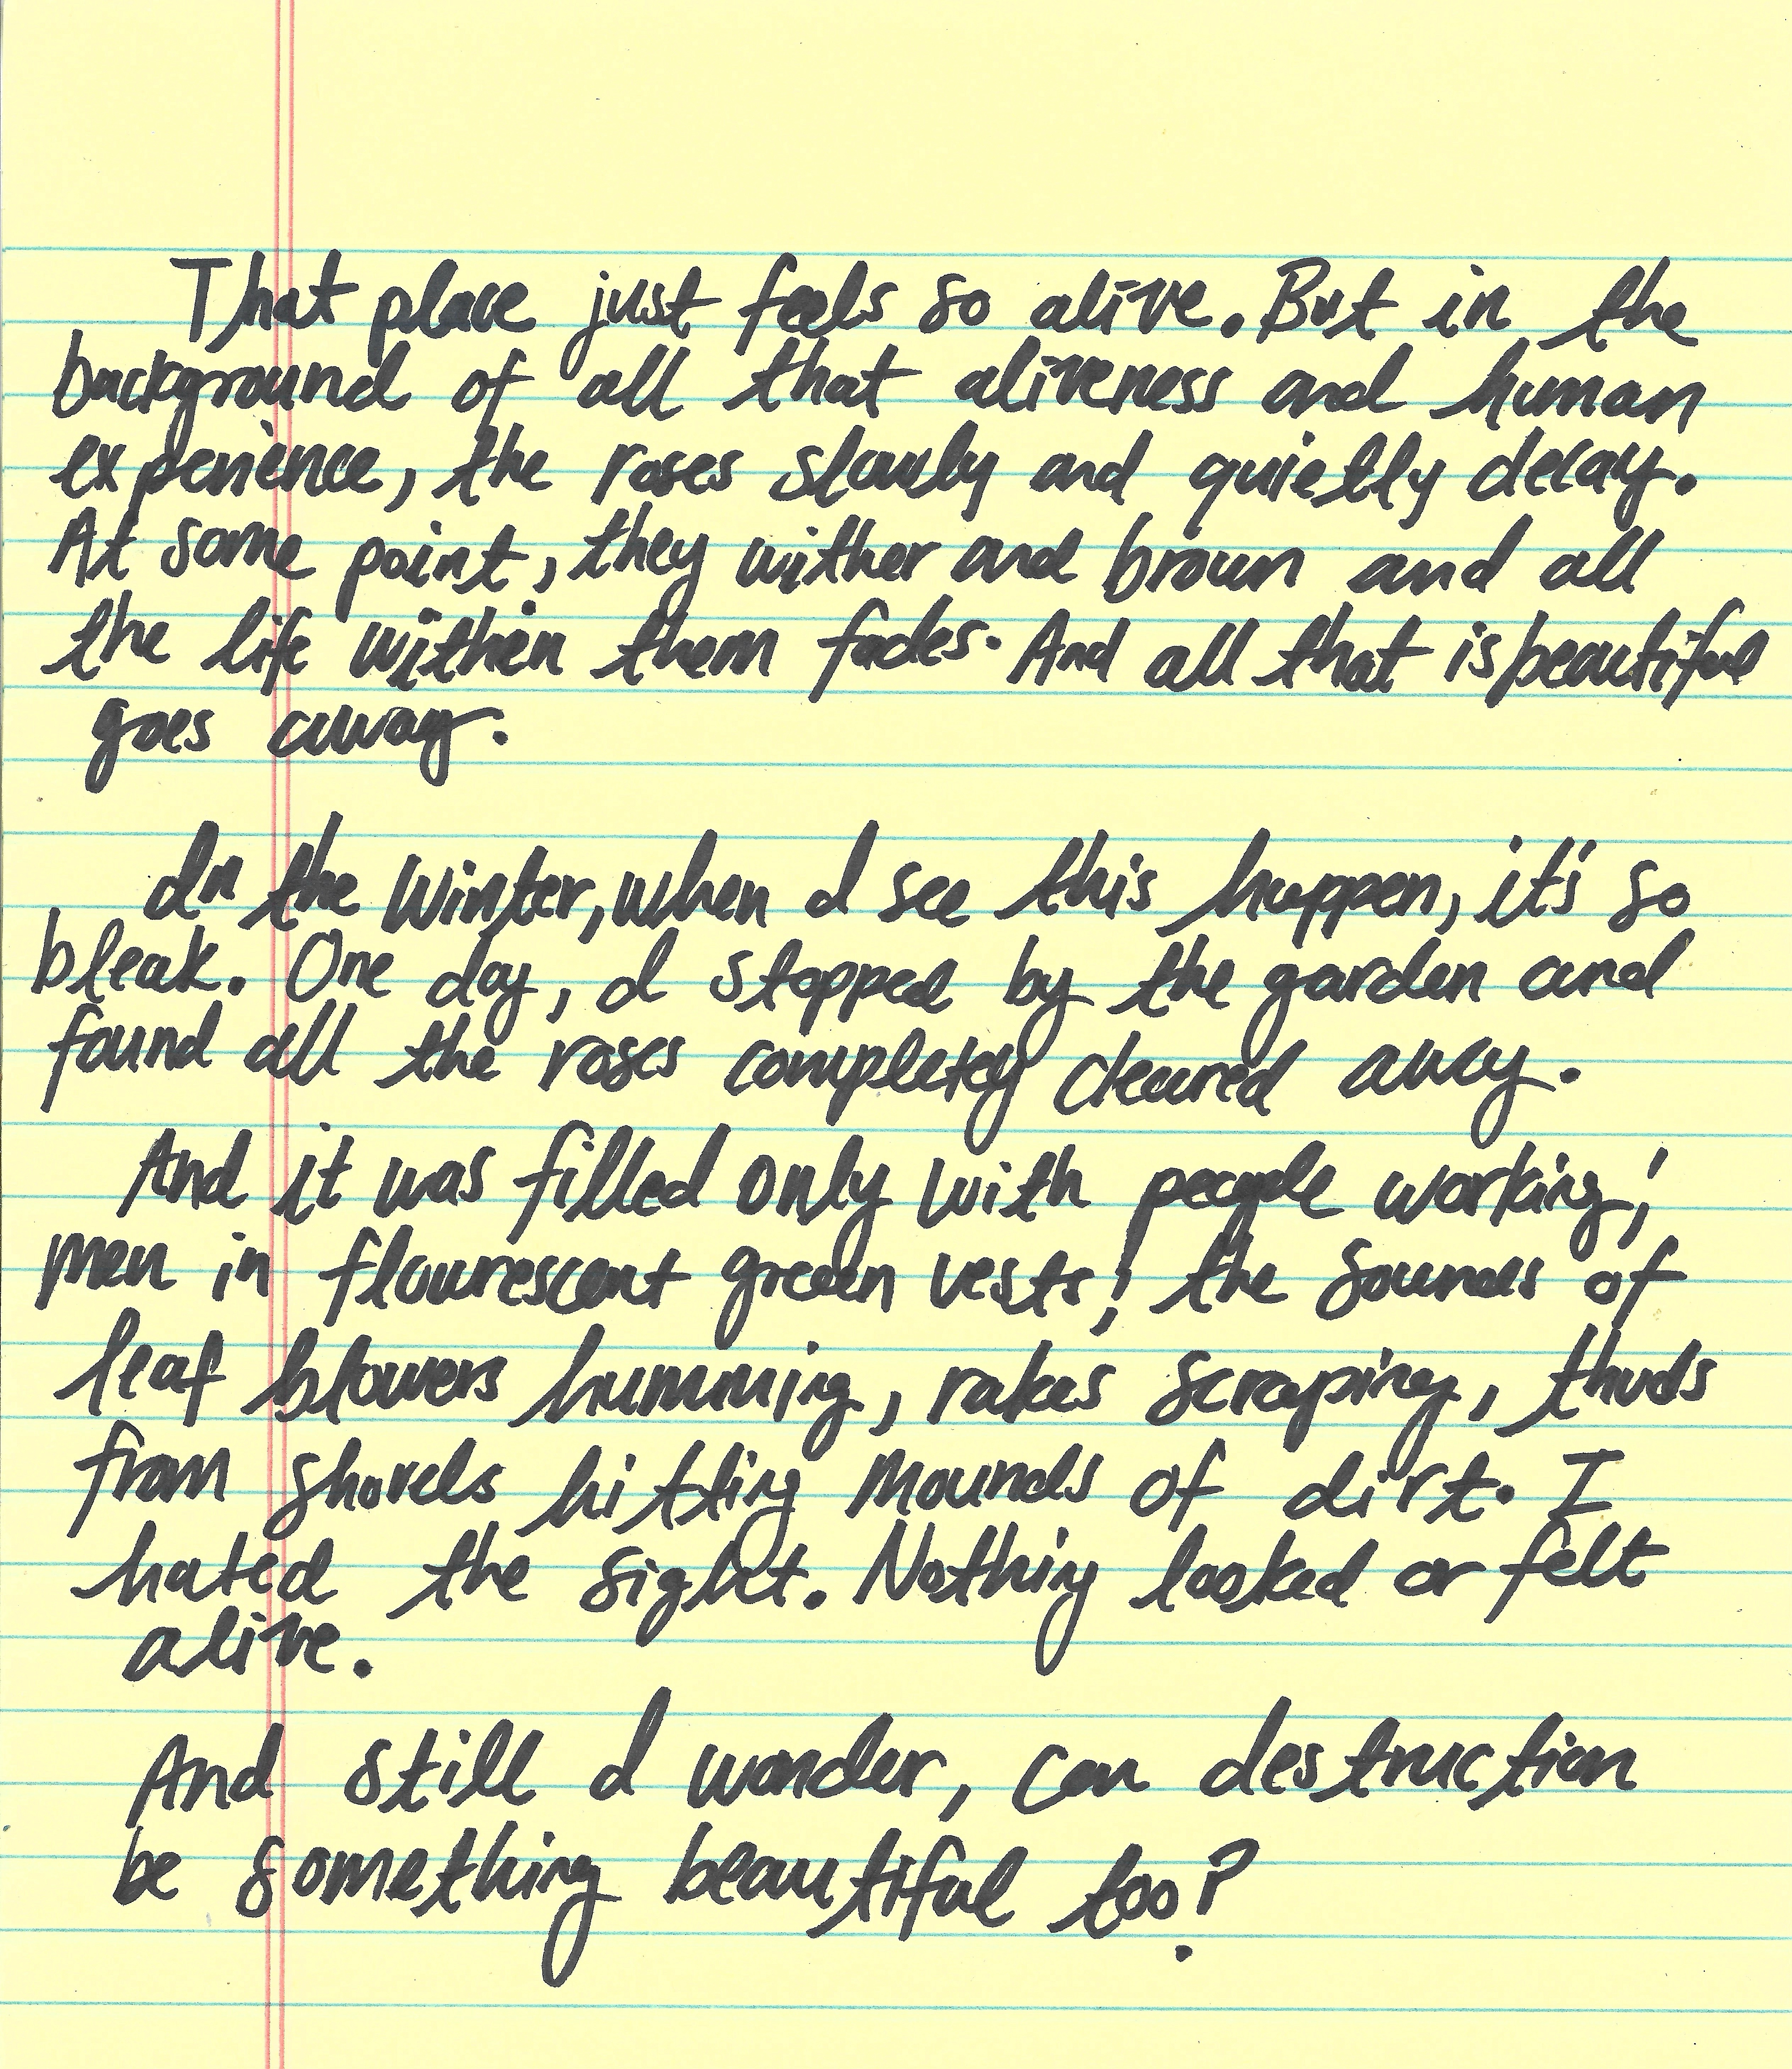 That place just feels so alive. But in the
background of all that aliveness and human
experience, the roses slowly and quietly decay.
At some point, they wither and brown and all
the life within them fades. And all that is beautiful
goes away.
In the Winter, when I see this happen, it's so
bleak. One day, I stopped by the garden and
found all the roses completely cleared away.
And it was filled only with people working;
men in flourescent green vests; the sounds of
leaf blowers humming, rakes scraping, thuds
from shovels hitting mounds of dirt. I
hated the sight. Nothing looked or felt
alive.
And still I wonder, can destruction
be something beautiful too?